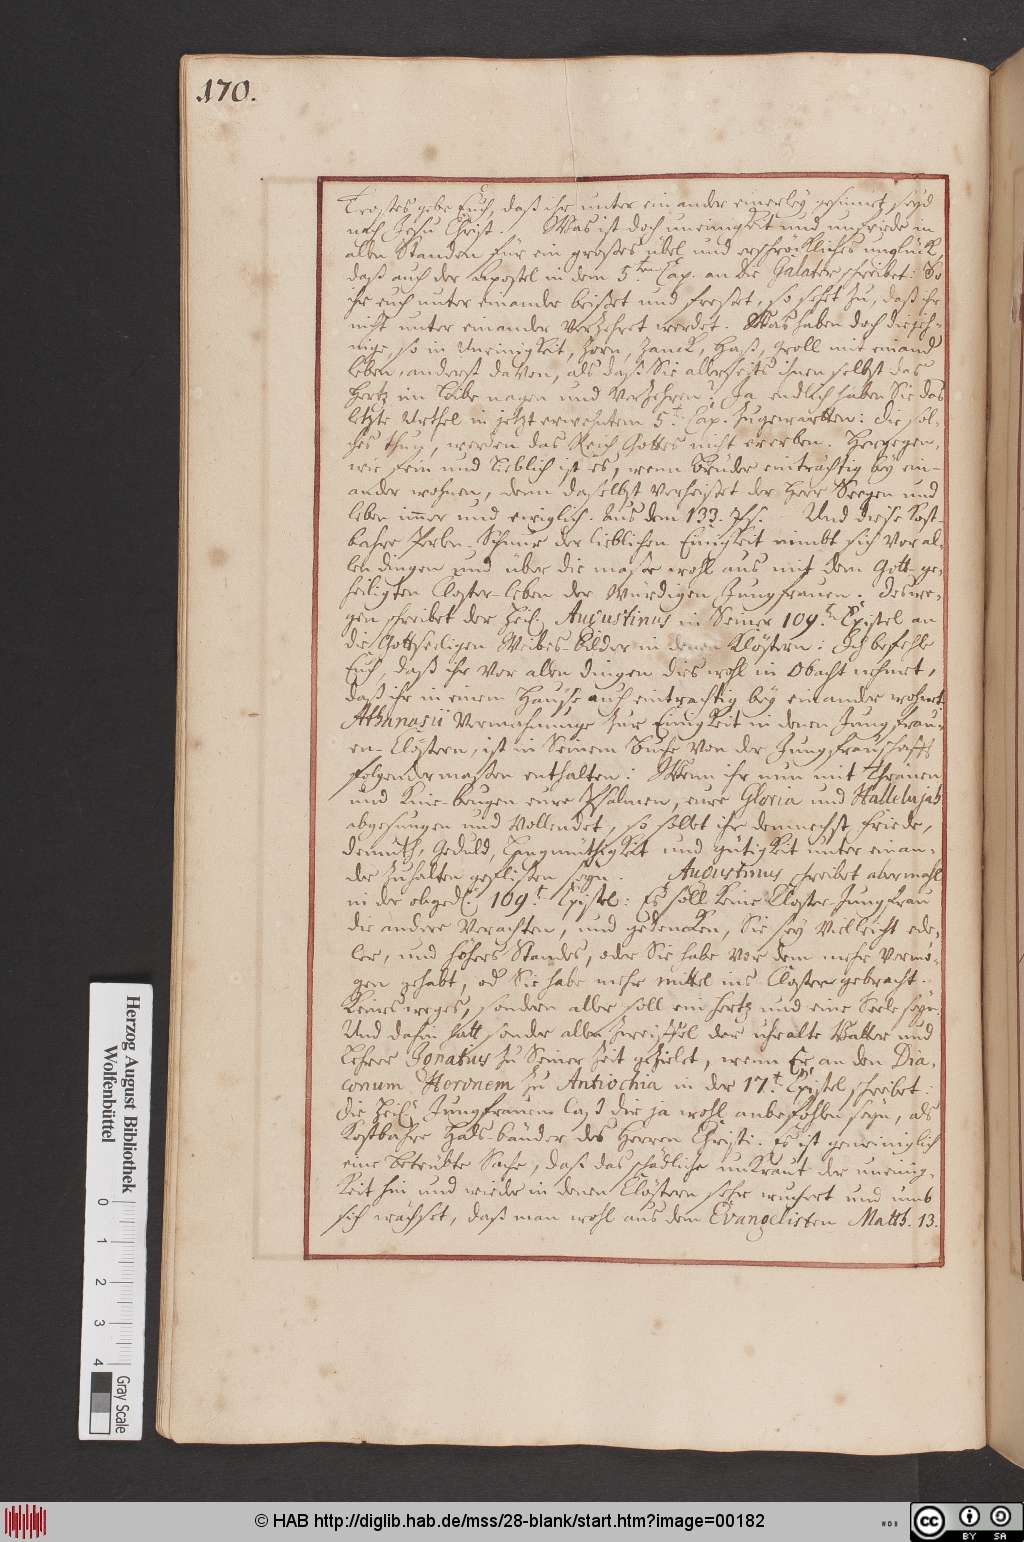 170.
Trostes gebe Euch, daß ihr unter ein ander einerley gesinnet seyd
nach Jesu Christ. Was ist doch uneinigkeit und unfriede in
allen Standen für ein großes übel und erschröckliches unglück
daß auch der Apostel in dem 5ten Cap. an die Galater schreibet: So
ihr euch unter einander beißet und freßet, so sehet zu, daß ihr
nicht unter einander verzehret werdet. Was haben doch diejeh-
nige, so in Uneinigkeit, Zorn, Zanck, Haß, Groll mit einand
leben, anderst davon, als daß Sie allerseits ihnen selbst das
Hertz im Leibe nagen und verzehren? Ja endlich haben Sie das
letzte Urthel in jetzt erwehntem 5t. Cap. zugewartten: die sol-
ches thun, werden das Reich Gottes nicht ererben. Hergegen,
wie fein und lieblich ist es, wenn Brüder einträchtig bey ein-
ander wohnen, denn daselbst verheißet der Herr Seegen und
leben immer und ewiglich. Aus dem 133. Ps. Und diese Kost-
bahre Perlen-Schnur der lieblichen Einigkeit nimbt sich vor al-
len dingen und über die maße wohl aus mit dem Gott-ge-
heiligten Closter-leben der Würdigen Jungfrauen. Deßwe-
gen schreibet der Heil. Augustinus in Seiner 109t. Epistel an
die Gottseeligen Weibes-bilder in denen Clöstern: Ich befehle
Euch, daß ihr vor allen dingen dies wohl in Obacht nehmet,
daß ihr in einem Hause auch einträchtig bey einander wohnet
Athanasii Vermahnunge zur Einigkeit in denen Jungfrau-
en-Clöstern, ist in Seinem Buche von der Jungfrauschafft
folgender maßen enthalten: Wenn ihr nun mit Thränen
und Knie-beugen eure Psalmen, eure Gloria und Hallelujah
abgesungen und Vollendet, so sollet ihr demnechst, Friede,
demuth, Geduld, Langmüthigkeit und gütigkeit unter einan-
der zuhalten geflißen seyn. Augustinus schreibet abermahl
in der obged. 109t. Epistel: Es soll keine Closter-Jungfrau
die andere Verachten, und gedencken, Sie sey Vielleicht ede-
ler, und höhers Standes, oder Sie habe vor dem mehr Vermö-
gen gehabt, od Sie habe mehr mittel ins Closter gebracht.
Keines weges, sondern aller soll ein hertz und eine Seele seyn.
Und dahin hatt sonder allen zweiffel der uhralte Vatter und
Lehrer Ignatius zu Seiner Zeit gezielet, wenn Er an den Dia-
conum Heronem zu Antiochia in der 17t. Epistel schreibet:
die Heil. Jungfrauen laß dir ja wohl anbefohlen seyn, als
Kostbahre Hals-bänder des Herren Christi. Es ist gemeiniglich
eine betrübte Sache, daß das schädliche unkraut der uneinig-
keit hin und wieder in denen Clöstern sehr wuchert und umb
sich wächset, daß man wohl aus dem Evangelisten Matth. 13.
Herzog August Bibliothek
Wolfenbüttel
0 1 2 3 4
Gray Scale
© HAB http://diglib.hab.de/mss/28-blank/start.htm?image=00182
WDB
cc BY SA